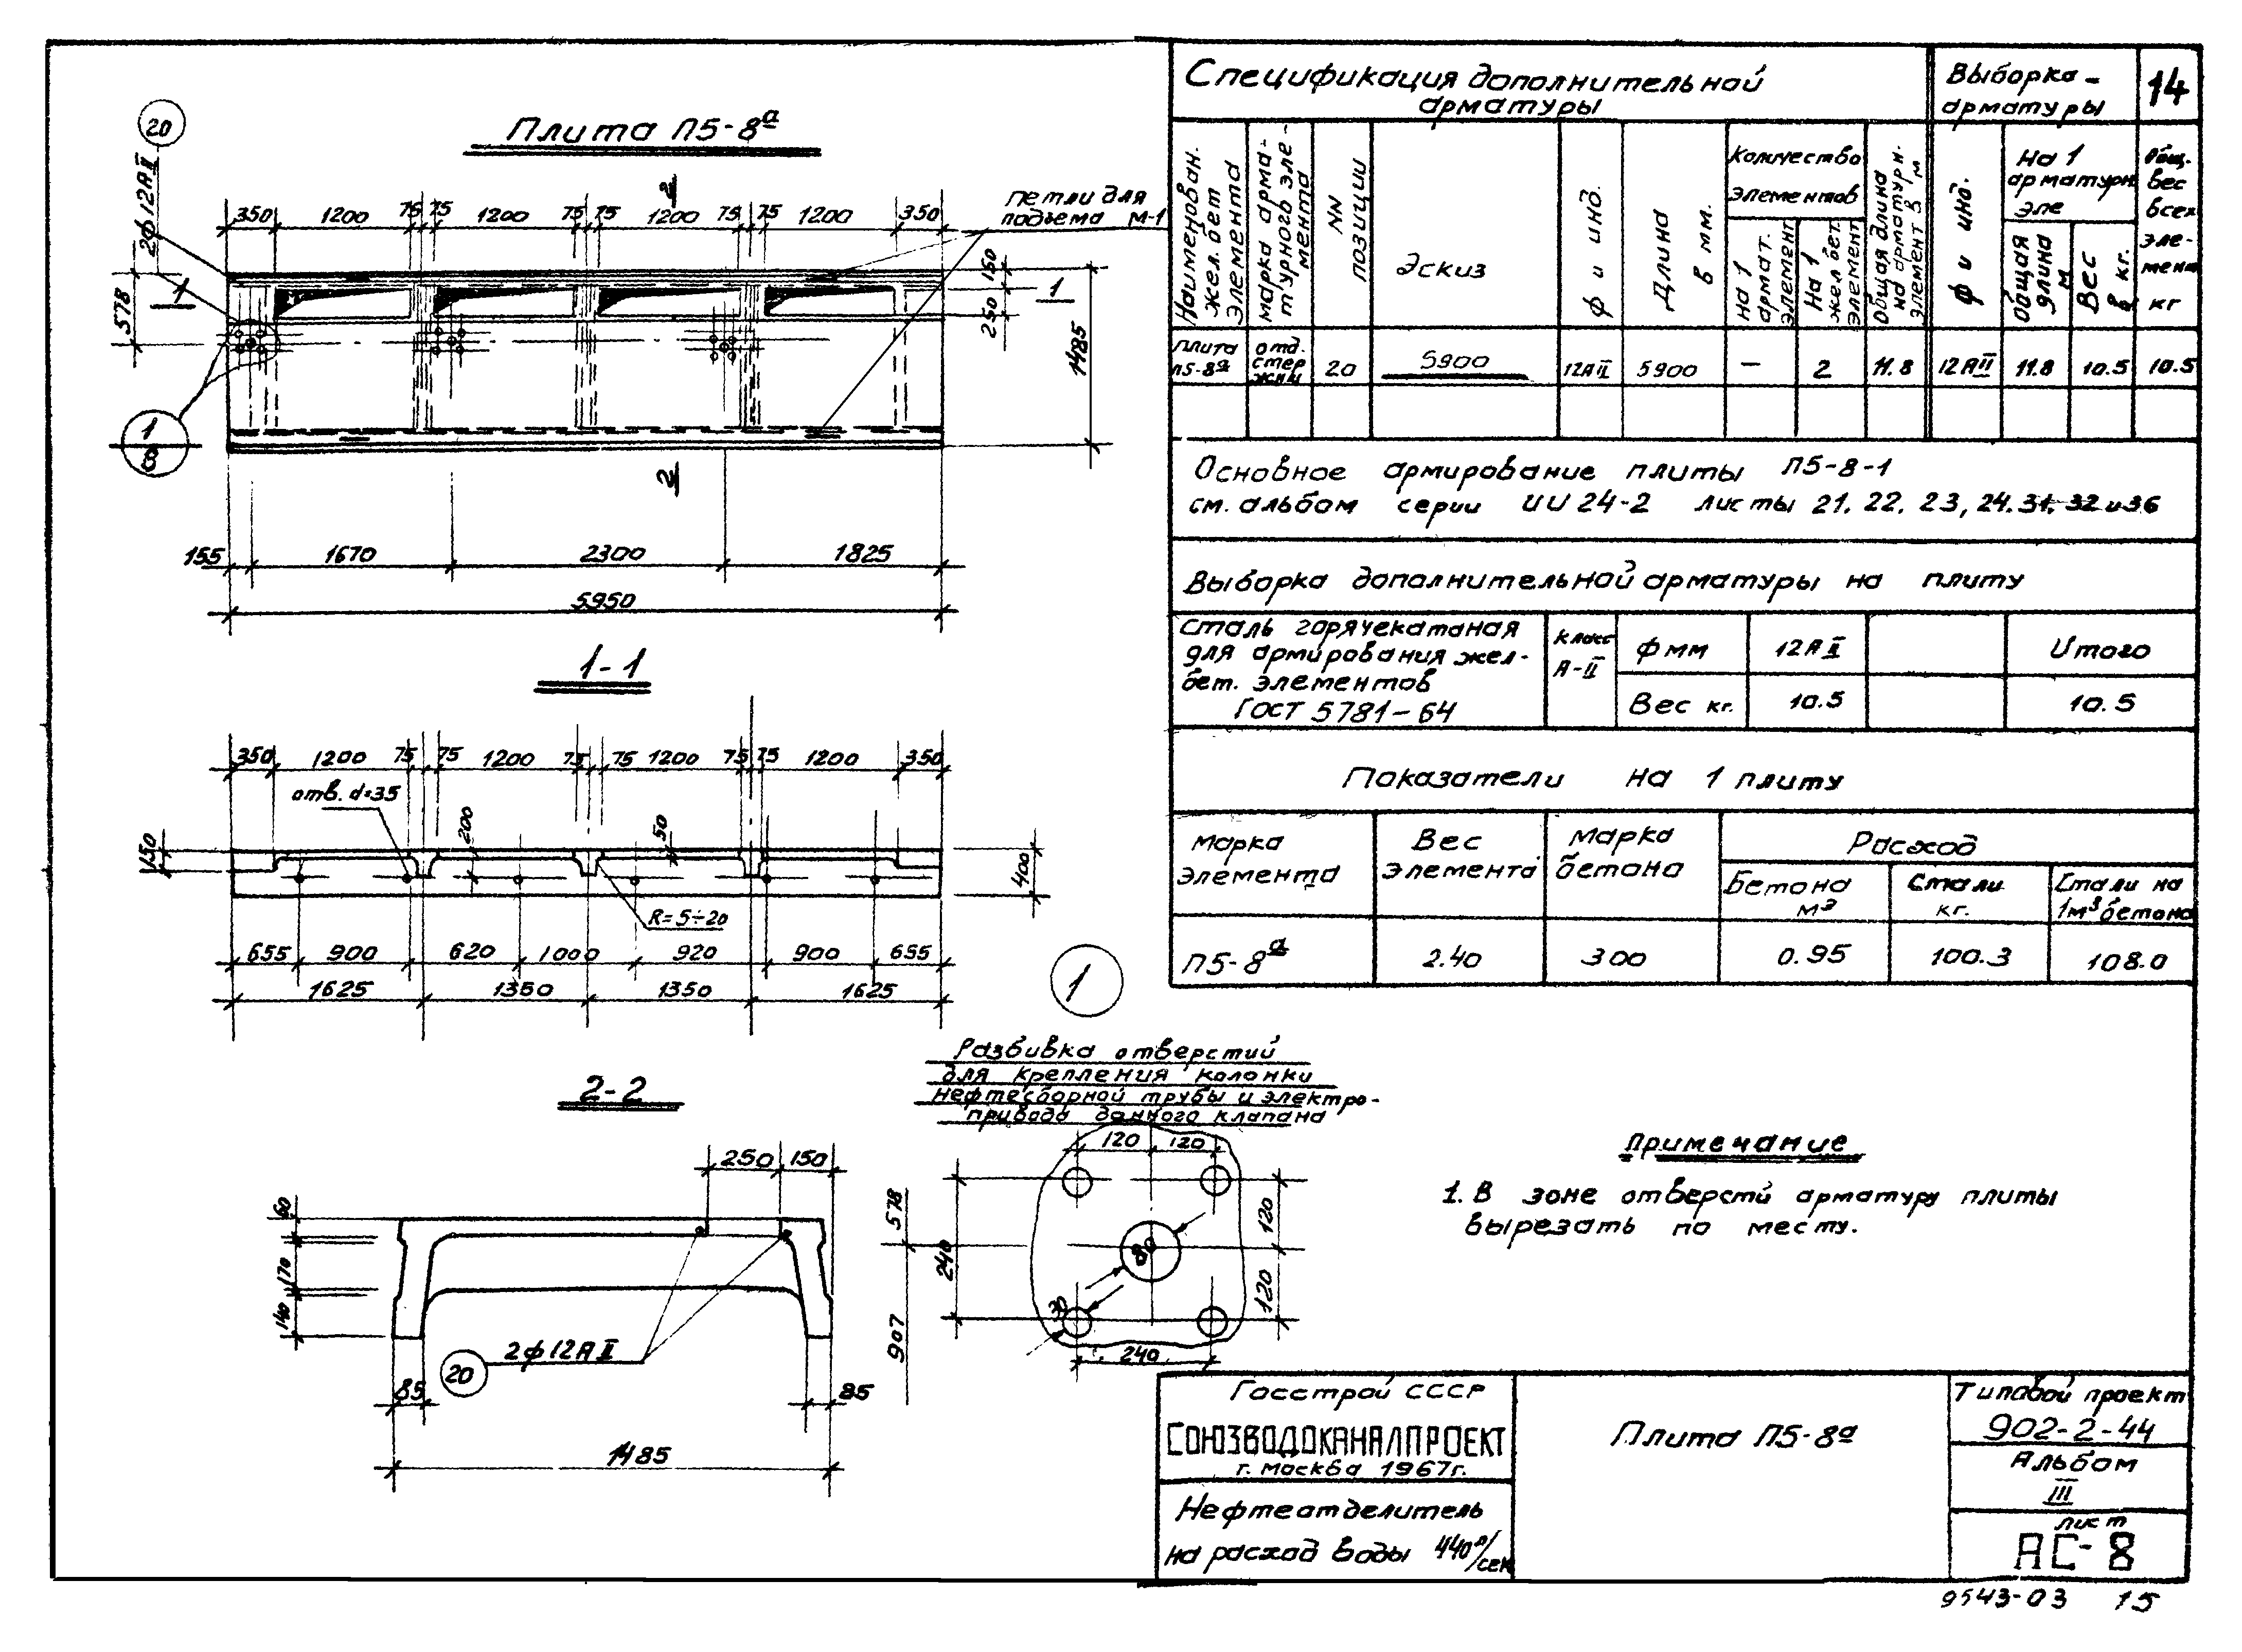 Плита П5-8ª
20
2ф12АII
2
петли для
подъема М-1
350 1200 75 75 1200 75 75 1200 75 75 1200 350
578
1
150
250
1
1485
1
8
2
155 1670 2300 1825
5950
1-1
350 1200 75 75 1200 75 75 1200 75 75 1200 350
отв. d=35
200
50
150
400
R=5÷20
655 900 620 1000 920 900 655
1625 1350 1350 1625
2-2
250 150
60
170
140
20
2ф12АII
85
85
1485
1
Разбивка отверстий
для крепления колонки
нефтесборной трубы и электро-
привода донного клапана
120 120
578
907
240
80
30
120
120
240
Спецификация дополнительной
арматуры
Выборка-
арматуры
14
Наименован.
жел. бет
элемента
марка арма-
турного эле-
мента
NN
позиции
Эскиз
ф и инд.
Длина
в мм.
Количество
элементов
на 1
армат.
элемент
На 1
жел бет.
элемент
Общая длина
на арматурн.
элемент в м
ф и инд.
на 1
арматурн
эле
Общая
длина
м
Вес
в кг.
Общ.
вес
всех
эле-
мент
кг
плита
П5-8ª
отд.
стер
жни
20
5900
12АII
5900
—
2
11.8
12АII
11.8
10.5
10.5
Основное армирование плиты П5-8-1
см. альбом серии ИИ 24-2 листы 21, 22, 23, 24. 31, 32 и 36
Выборка дополнительной арматуры на плиту
Сталь горячекатаная
для армирования жел-
бет. элементов
ГОСТ 5781-64
Класс
А-II
ф мм
12АII
Итого
Вес кг.
10.5
10.5
Показатели на 1 плиту
Марка
элемента
Вес
элемента
Марка
бетона
Расход
Бетона
м³
Стали
кг.
Стали на
1м³ бетона
П5-8ª
2.40
300
0.95
100.3
108.0
Примечание
1. В зоне отверстй арматуру плиты
вырезать по месту.
Госстрой СССР
СОЮЗВОДОКАНАЛПРОЕКТ
г. Москва 1967г.
Нефтеотделитель
на расход воды 440л/сек
Плита П5-8ª
Типовой проект
902-2-44
Альбом
III
лист
АС-8
9543-03 15